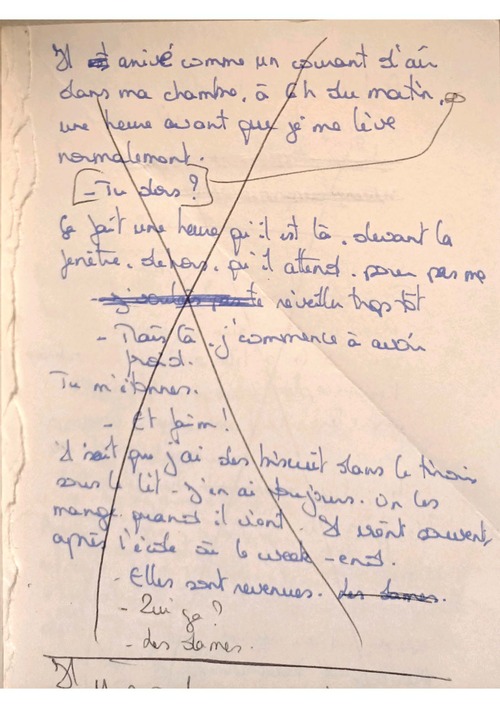 Il est arrivé comme un courant d'air
dans ma chambre, à 6h du matin,
une heure avant que je me lève
normalement.
- Tu dors ?
Ça fait une heure qu'il est là, devant la
fenêtre, dehors, qu'il attend, pour pas me
- j'voulais pas te réveiller trop tôt
- Mais là, j'commence à avoir
froid.
Tu m'étonnes.
- Et faim !
Il sait que j'ai des biscuit dans le tiroir
sous le lit - j'en ai toujours. On les
mange quand il vient. Il vient souvent,
après l'école où le week-end.
- Elles sont revenues. Les dames.
- Qui ça ?
- Les dames.
Il